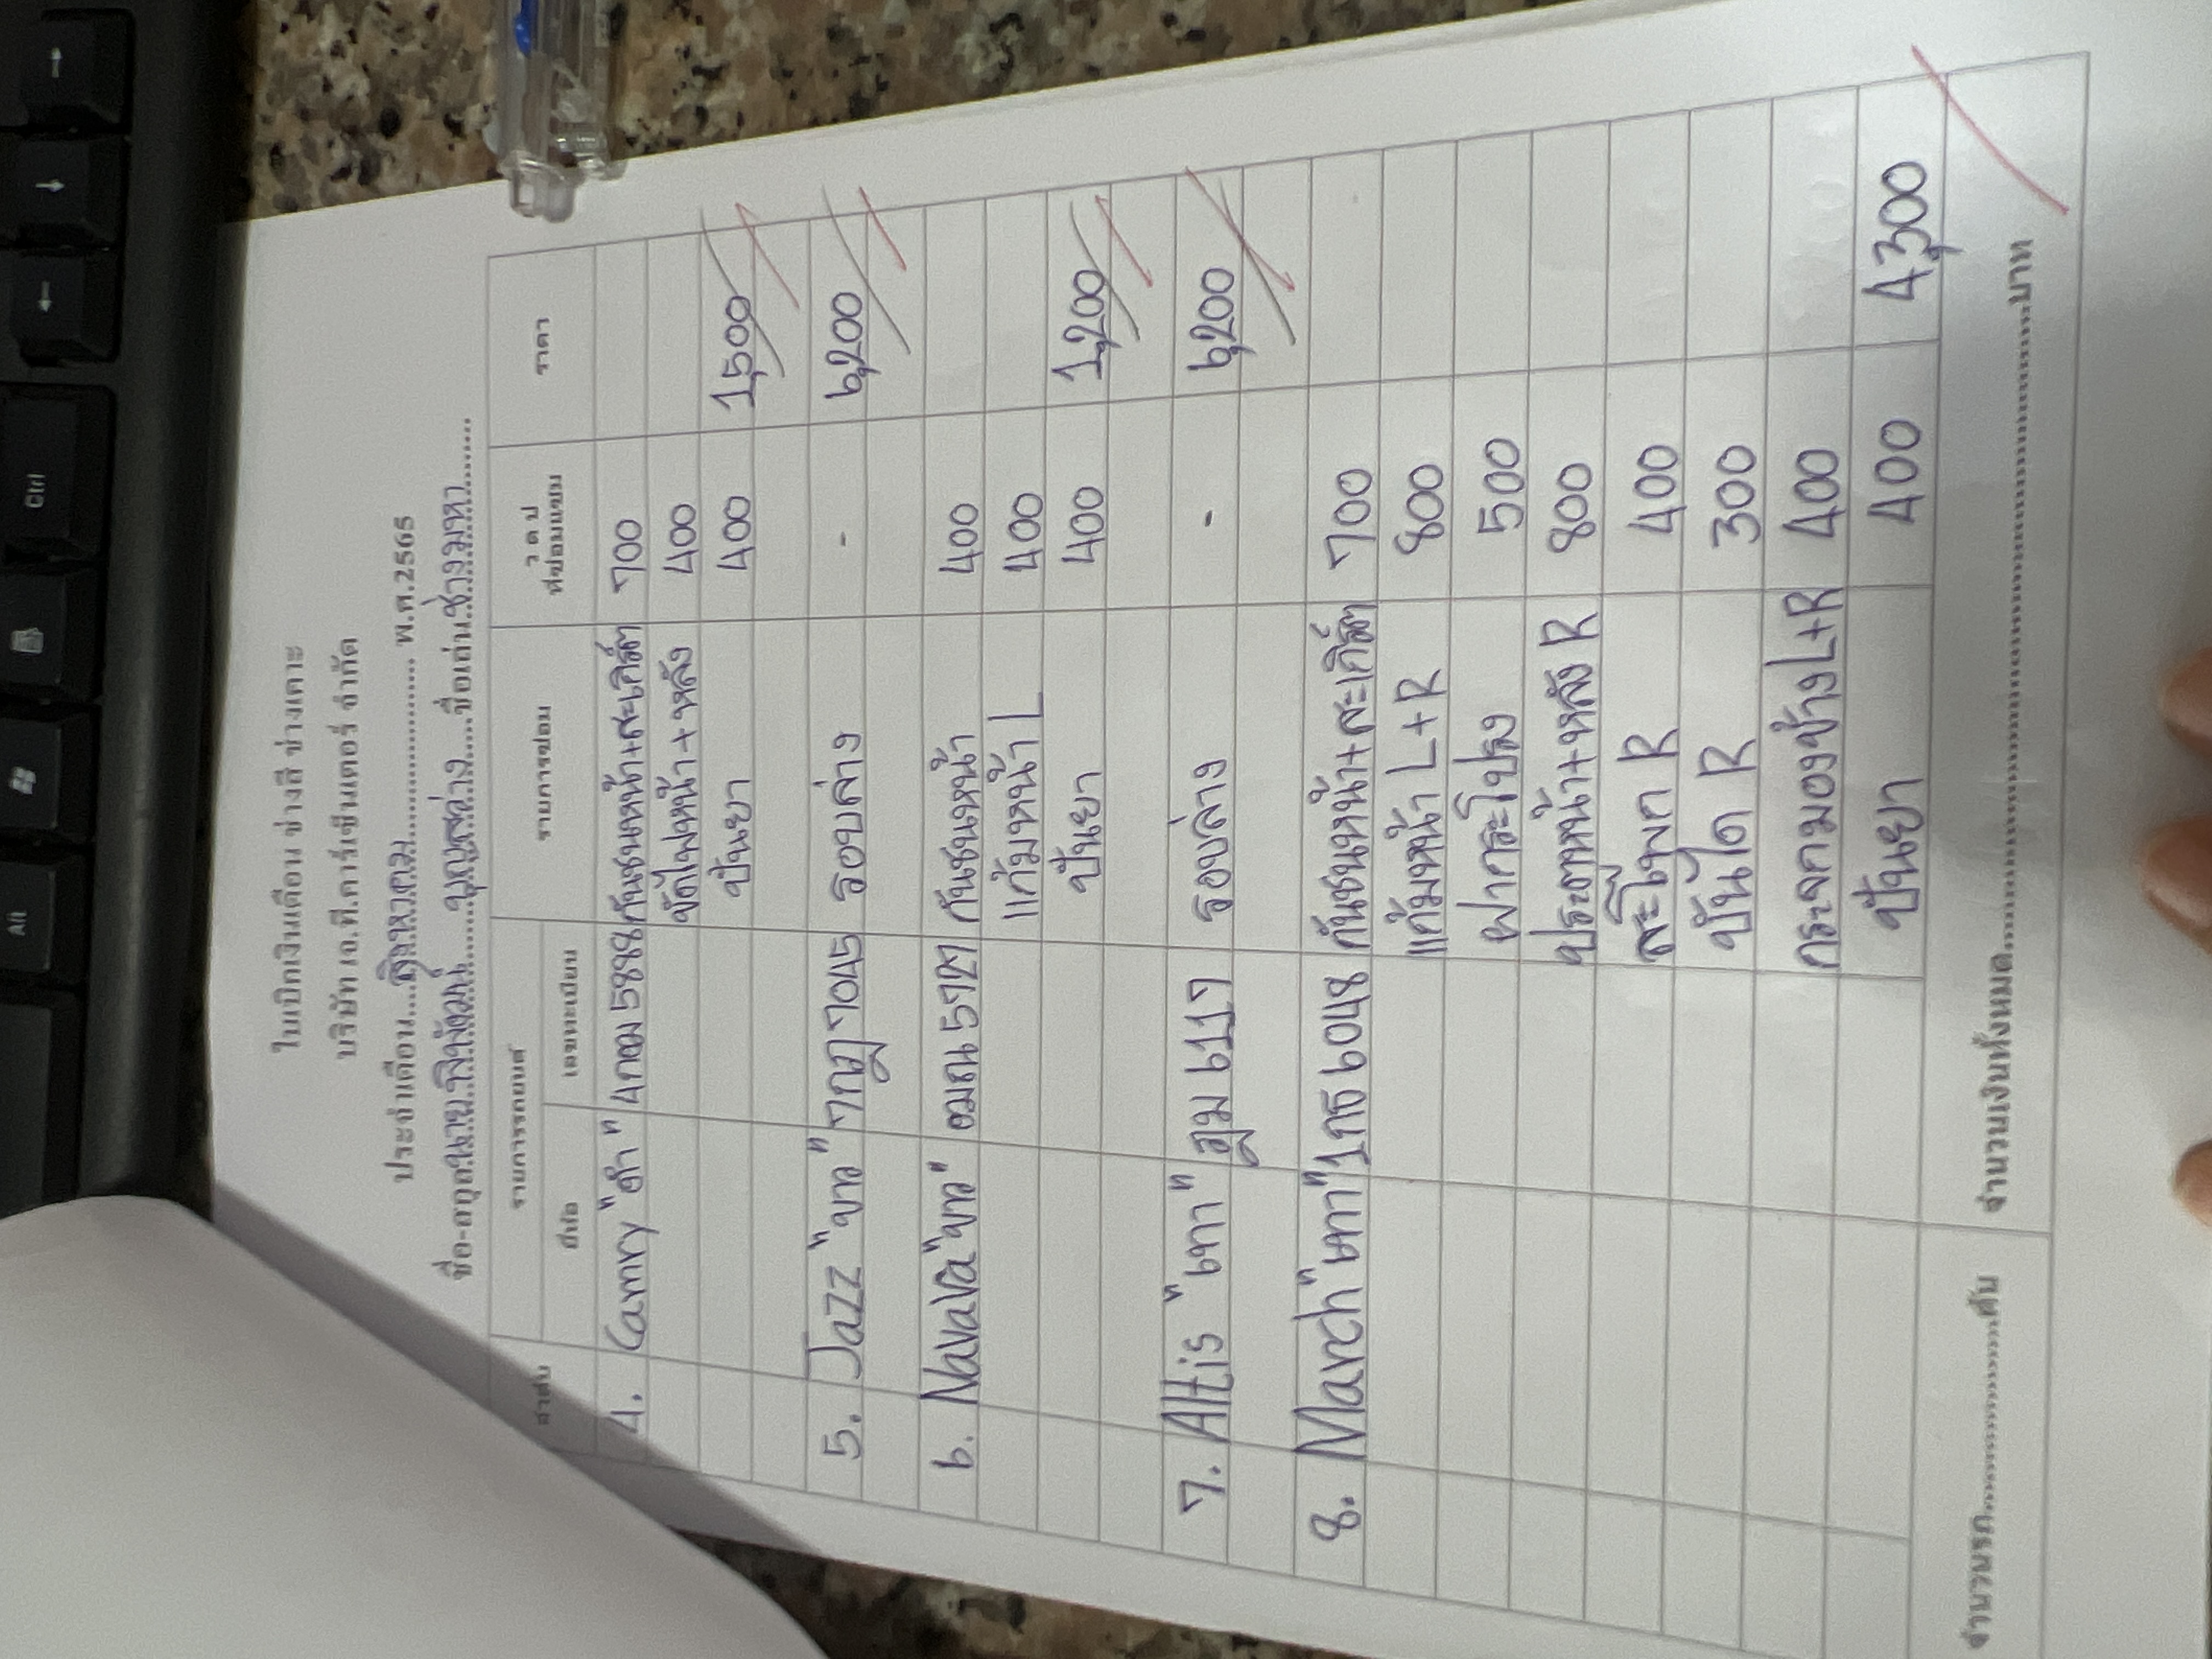 ใบเบิกเงินเดือน ช่างสี ช่างเคาะ
บริษัท เอ.ที.คาร์เซ็นเตอร์ จำกัด
ประจำเดือน...สิงหาคม... พ.ศ.2565
ชื่อ-สกุล นาย บุญสว่าง ชื่อเล่น ช่างมหา
ลำดับ รายการรถยนต์ รายการซ่อม ว ด ป ที่ซ่อมแซม ราคา
ยี่ห้อ เลขทะเบียน
4. Camry "ดำ" 4กฌ 5898 กันชนหน้า+สะเกิร์ต 700
ขัดไฟหน้า + หลัง 400
ปั่นยา 400 1,500
5. Jazz "ขาว" 7กฎ 7045 รอบล่าง - 6,200
6. Navara "ขาว" ฒณ 5727 กันชนหน้า 400
แก้มหน้า L 400
ปั่นยา 400 1,200
7. Altis "เทา" ฎม 6117 รอบล่าง - 6,200
8. March "เทา" 1กธ 6048 กันชนหน้า+สะเกิร์ต 700
แก้มหน้า L+R 800
ฝากระโปรง 500
ประตูหน้า+หลัง R 800
สะโพก R 400
บันได R 300
กระจกมองข้าง L+R 400
ปั่นยา 400 4,300
จำนวนรถ...............คัน จำนวนเงินทั้งหมด...............บาท